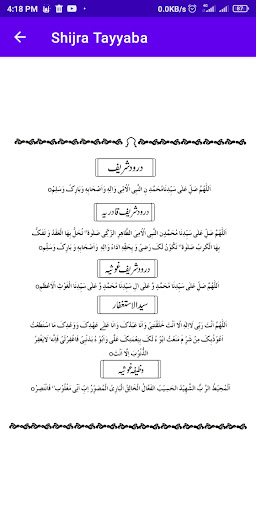 4:18 PM
0.0KB/s
87
Shijra Tayyaba
درود شریف
اَللّٰهُمَّ صَلِّ عَلٰی سَیِّدِنَا مُحَمَّدِنِ النَّبِیِّ الْاُمِّیِّ وَاٰلِهٖ وَاَصْحَابِهٖ وَبَارِکْ وَسَلِّمْ
درود شریف قادریہ
اَللّٰهُمَّ صَلِّ عَلٰی سَیِّدِنَا مُحَمَّدِنِ النَّبِیِّ الْاُمِّیِّ الطَّاهِرِ الزَّکِیِّ صَلٰوةً تُحَلُّ بِهَا الْعُقَدُ وَ تُفَکُّ
بِهَا الْکُرَبُ صَلٰوةً تَکُوْنُ لَکَ رِضًی وَ بِحَقِّهٖ اَدَاءً وَاٰلِهٖ وَاَصْحَابِهٖ وَ بَارِکْ وَسَلِّمْ
درود شریف غوثیہ
اَللّٰهُمَّ صَلِّ عَلٰی سَیِّدِنَا مُحَمَّدٍ وَّ عَلٰی اٰلِ سَیِّدِنَا مُحَمَّدٍ وَّ عَلٰی سَیِّدِنَا الْغَوْثِ الْاَعْظَمِ
سید الاستغفار
اَللّٰهُمَّ اَنْتَ رَبِّیْ لَا اِلٰهَ اِلَّا اَنْتَ خَلَقْتَنِیْ وَاَنَا عَبْدُکَ وَ اَنَا عَلٰی عَهْدِکَ وَوَعْدِکَ مَا اسْتَطَعْتُ
اَعُوْذُبِکَ مِنْ شَرِّ مَا صَنَعْتُ اَبُوْءُ لَکَ بِنِعْمَتِکَ عَلَیَّ وَاَبُوْءُ بِذَنْبِیْ فَاغْفِرْلِیْ فَاِنَّهٗ لَا یَغْفِرُ
الذُّنُوْبَ اِلَّا اَنْتَ
وظیفہ غوثیہ
اَلْمُحِیْطُ الرَّبُّ الشَّهِیْدُ الْحَسِیْبُ الْفَعَّالُ الْخَالِقُ الْبَارِئُ الْمُصَوِّرُ اِنِّیْ مَغْلُوْبٌ فَانْتَصِرْ